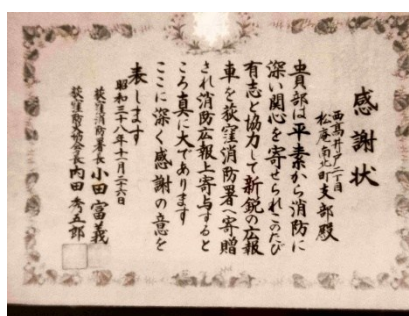 感謝状
西高井戸二丁目
松庵南北町支部殿
貴部は平素から消防に
深い関心を寄せられこのたび
有志と協力して新鋭の広報
車を荻窪消防署へ寄贈
され消防広報上寄与すると
ころ真に大であります
ここに深く感謝の意を
表します
昭和三十八年十一月二十六日
荻窪消防署長 小田富義
荻窪防火協会長 内田秀五郎